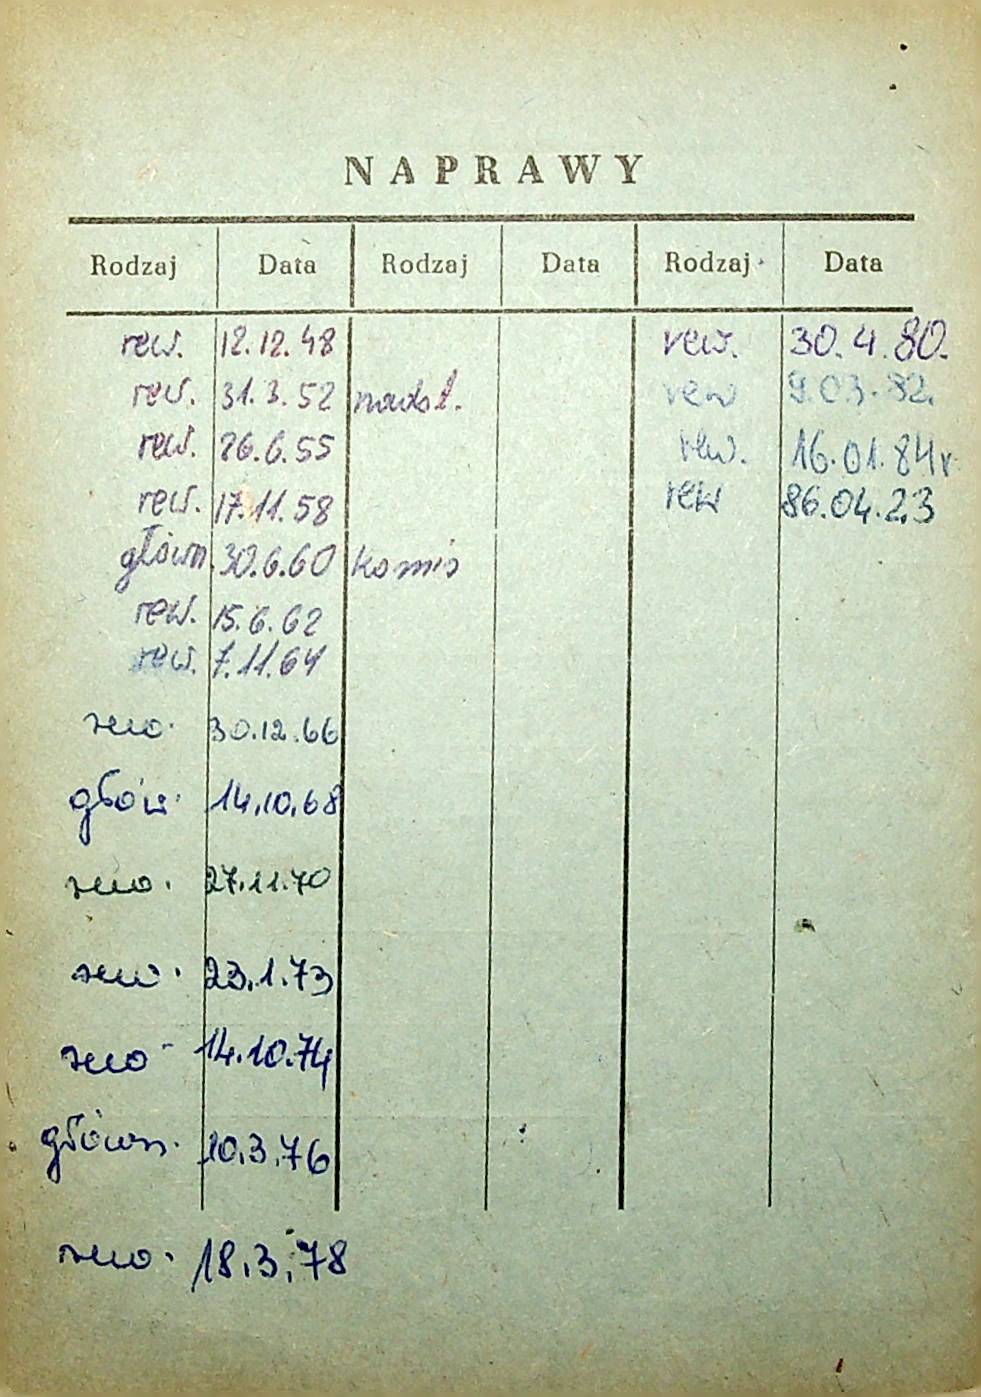 NAPRAWY
Rodzaj Data Rodzaj Data Rodzaj Data
rew. 12.12.48 rew. 30.4.80.
rew. 31.3.52 rew 9.03.82.
rew. 26.6.55 rew. 16.01.84r
rew. 17.11.58 rew 86.04.23
główn. 30.6.60 komis
rew. 15.6.62
rew. 7.11.64
rew. 30.12.66
głów. 14.10.68
rew. 27.11.70
rew. 23.1.73
rew. 14.10.74
główn. 10.3.76
rew. 18.3.78